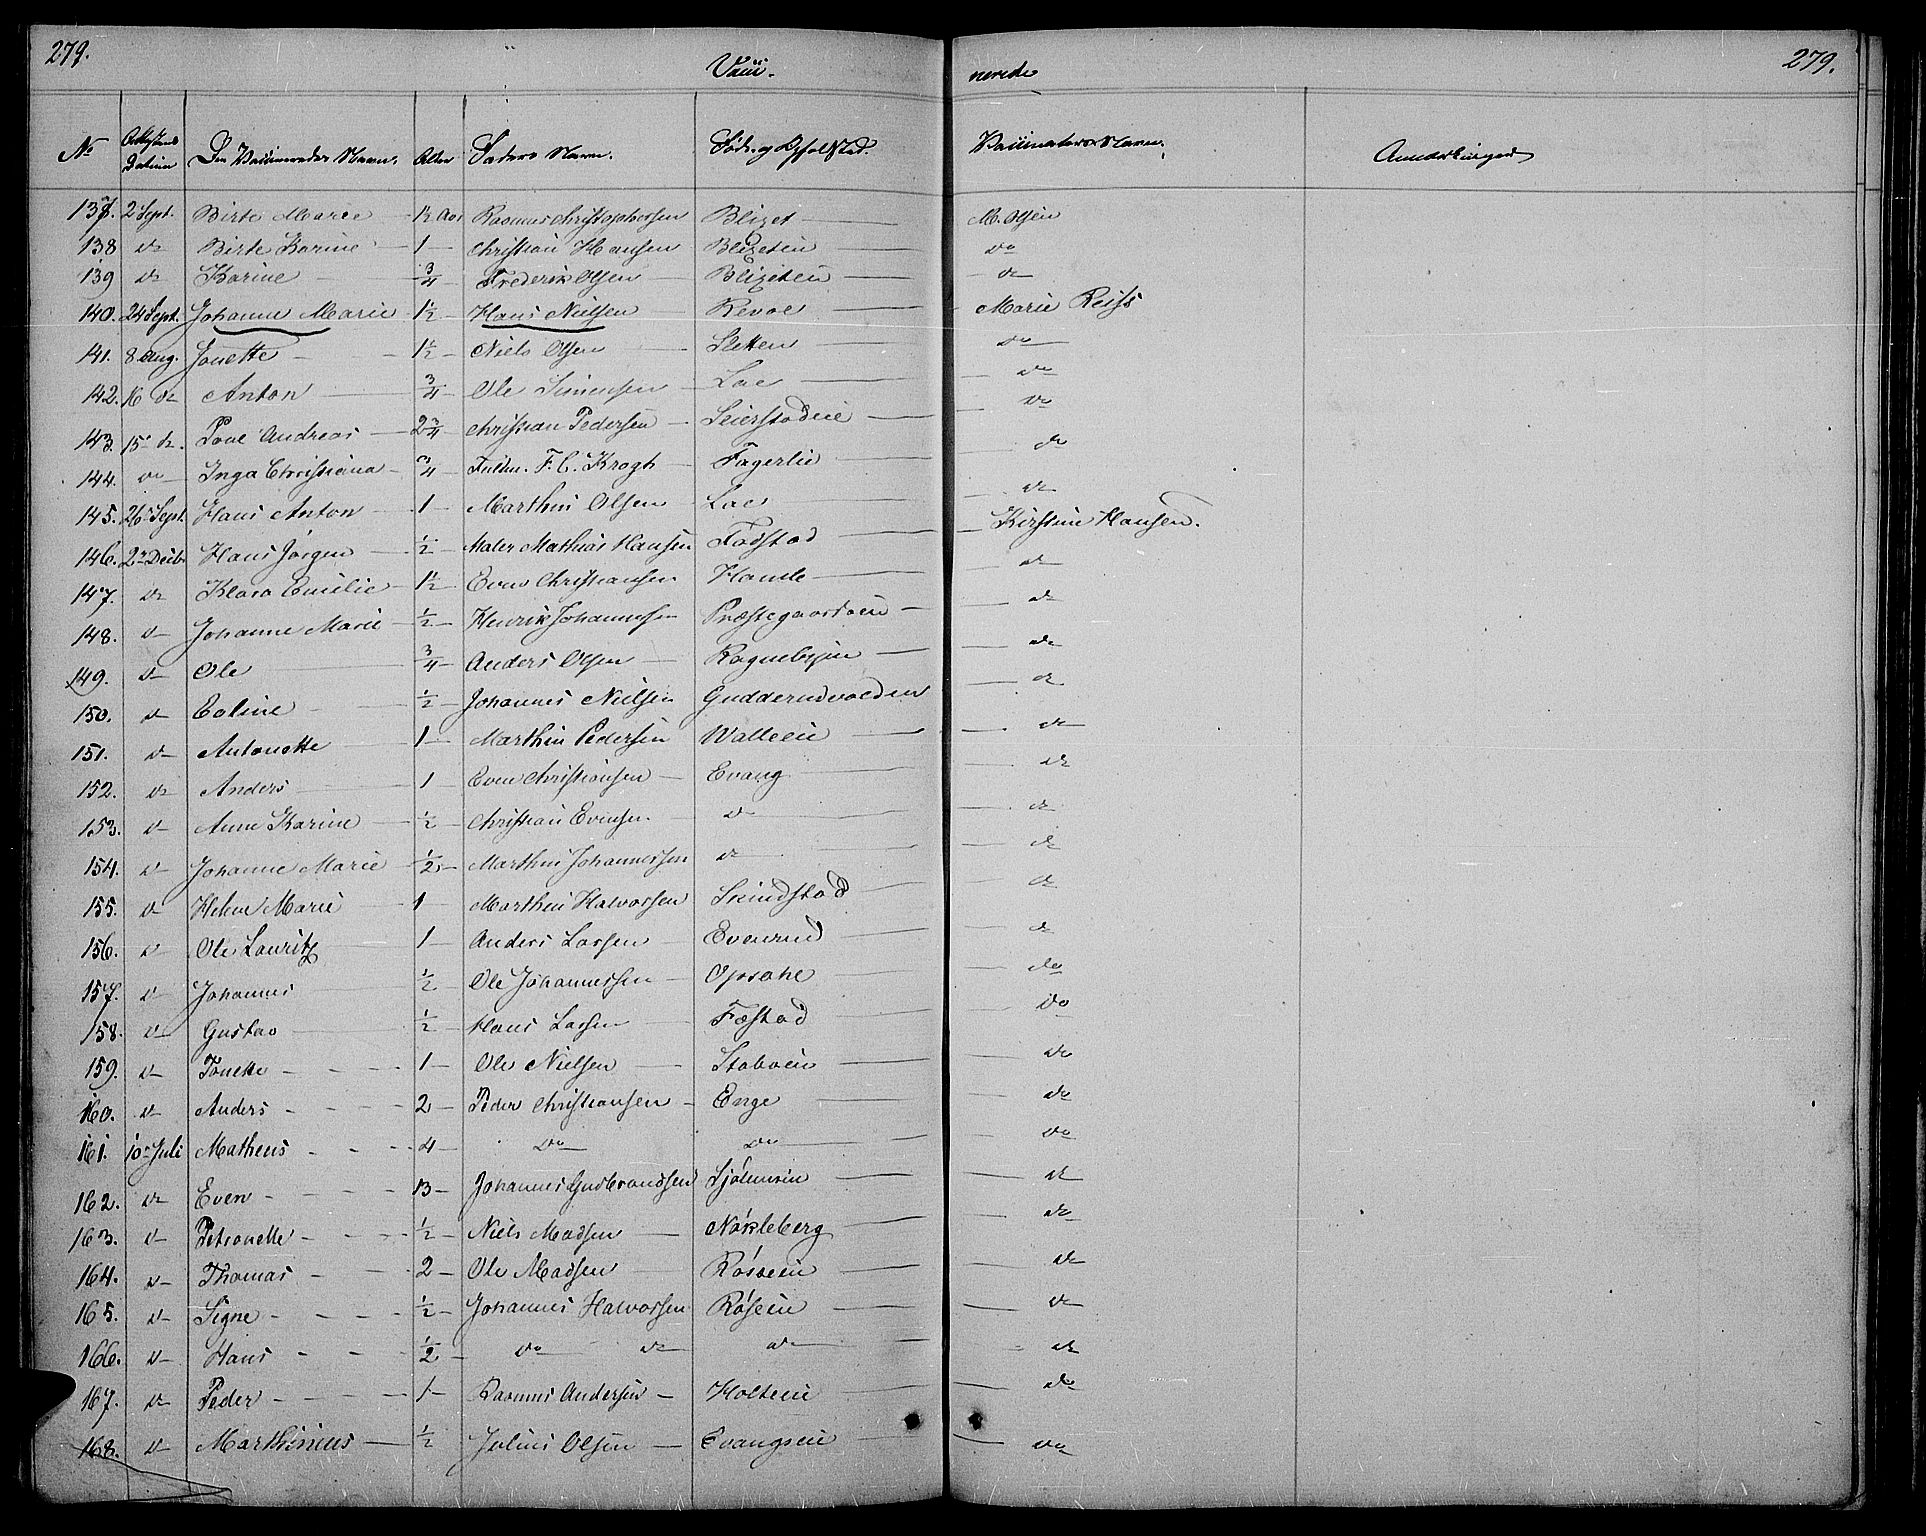 279. Vaci- nerede 279.
No Attestens Datum Den Vaccineredes Navn. Alder Faders Navn. Føde- og Opholdsted. Vaccinateurs Navn. Anmærkninger
137. 2 Sept. Birte Marie 1½ Aar Rasmus Christophersen Blixet M. Olsen
138 do Birte Karine 1 Christian Hansen Blixeteie do
139 do Karine ¾ Frederik Olsen Blixeteie do
140. 24 Sept. Johanne Marie 1½ Hans Nielsen Marie Reiss
141. 8 Aug. Jonette 1½ Niels Olsen Sletten do
142. 16 do Anton ¾ Ole Simensen Lae do
143. 15 do Povel Andreas 2¾ Christian Pedersen Seierstadeie do
144. do Inga Christiana ¾ Fuldm. F. C. Krogh Fagerlie do
145. 26 Sept. Hans Anton 1 Marthin Olsen Lae do
146. 2 Decb. Hans Jørgen ½ Maler Mathias Hansen Fadstad Kirstine Hansen.
147. do Klara Emilie 1½ Even Christiansen do
148. do Johanne Marie ½ Henrik Johannesen Præstegaardeie do
149. do Ole ¾ Anders Olsen do
150. do Eoline ½ Johannes Nielsen do
151. do Antonette 1 Marthin Pedersen Walleeie do
152. do Anders 1 Even Christiansen Evang do
153. do Anne Karine ½ Christian Evensen do do
154. do Johanne Marie ½ Marthin Johannessen do do
155. do Helene Marie 1 Marthin Halvorsen Skindstad do
156. do Ole Lauritz 1 Anders Larsen Evenrud do
157. do Johannes ½ Ole Johannessen Opsahl do
158. do Gustav ½ Hans Larsen Fæstad do
159. do Tonette 1 Ole Nielsen do
160. do Anders 2 Peder Christiansen Enge do
161. 10 Juli Matheus 4 do do do
162. do Even 13 Johannes Gudbrandsen do
163. do Petronelle ½ Niels Madsen Nøkleberg do
164. do Thomas 2 Ole Madsen do
165. do Signe ½ Johannes Halvorsen Røseie do
166. do Hans ½ do do do do
167. do Peder 1 Rasmus Andersen Holteeie do
168. do Marthinius ½ Julius Olsen Evangseie do